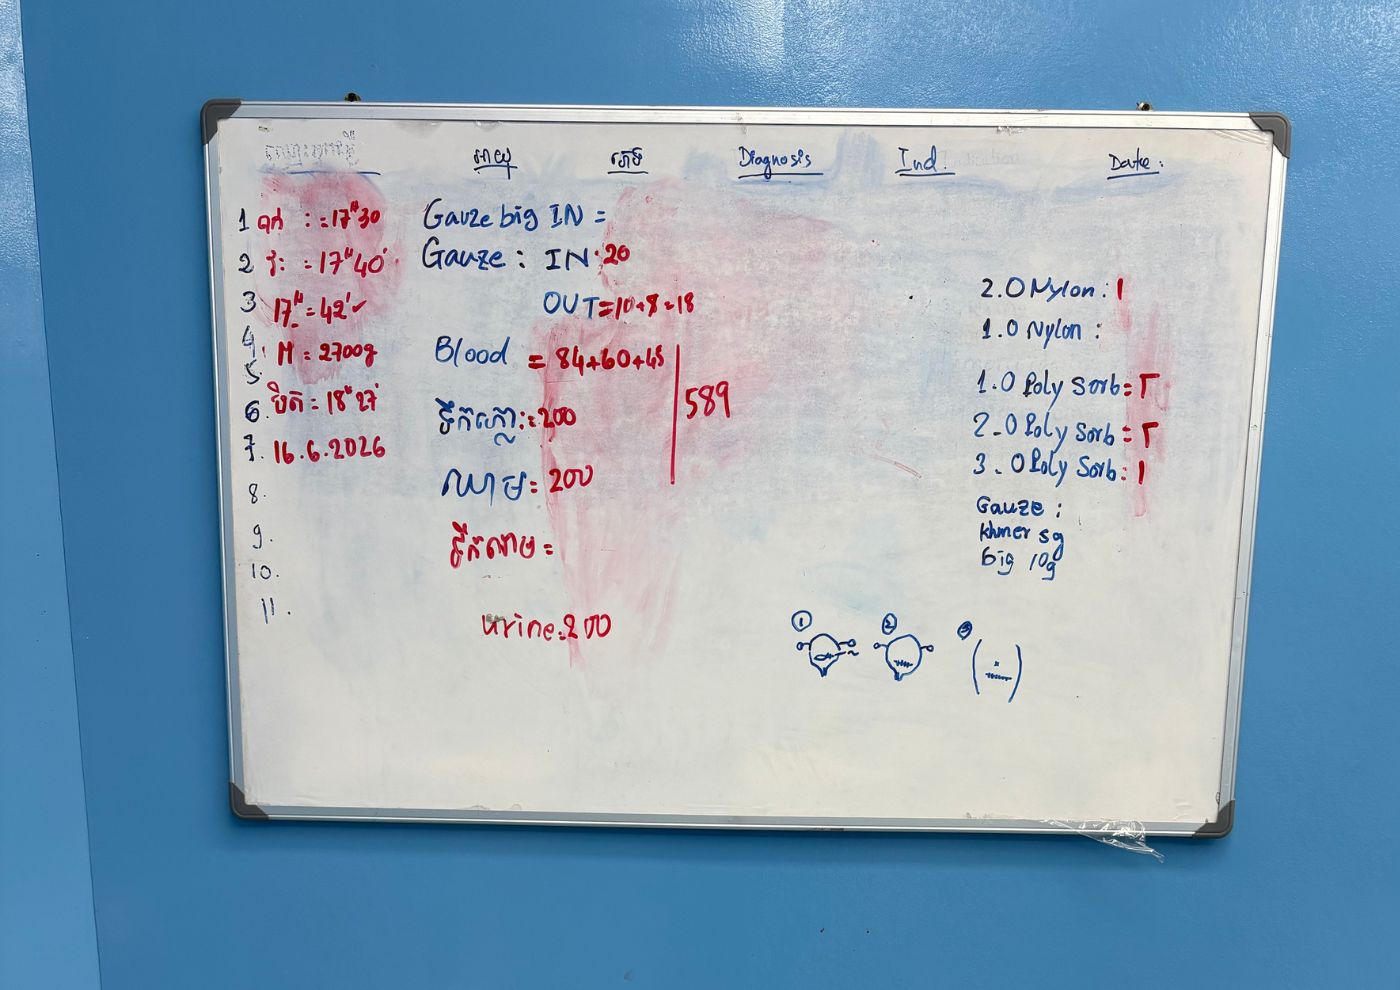 អាយុ ភេទ Diagnosis Ind. Date :
1 ចាក់ : = 17H30
2 វះ = 17H40'
3 17H = 42' ✓
4. M = 2700g
5.
6. បិត = 18H27'
7. 16.6.2026
8.
9.
10.
11.
Gauze big IN =
Gauze : IN = 20
OUT = 10+8=18
Blood = 84+60+45
ទឹកភ្លោះ = 200
589
ឈាម = 200
ទឹកឈាម =
urine = 200
2.0 Nylon : 1
1.0 Nylon :
1.0 Poly Sorb =
2.0 Poly Sorb =
3.0 Poly Sorb : 1
Gauze :
khmer 5g
big 10g
① ② ③